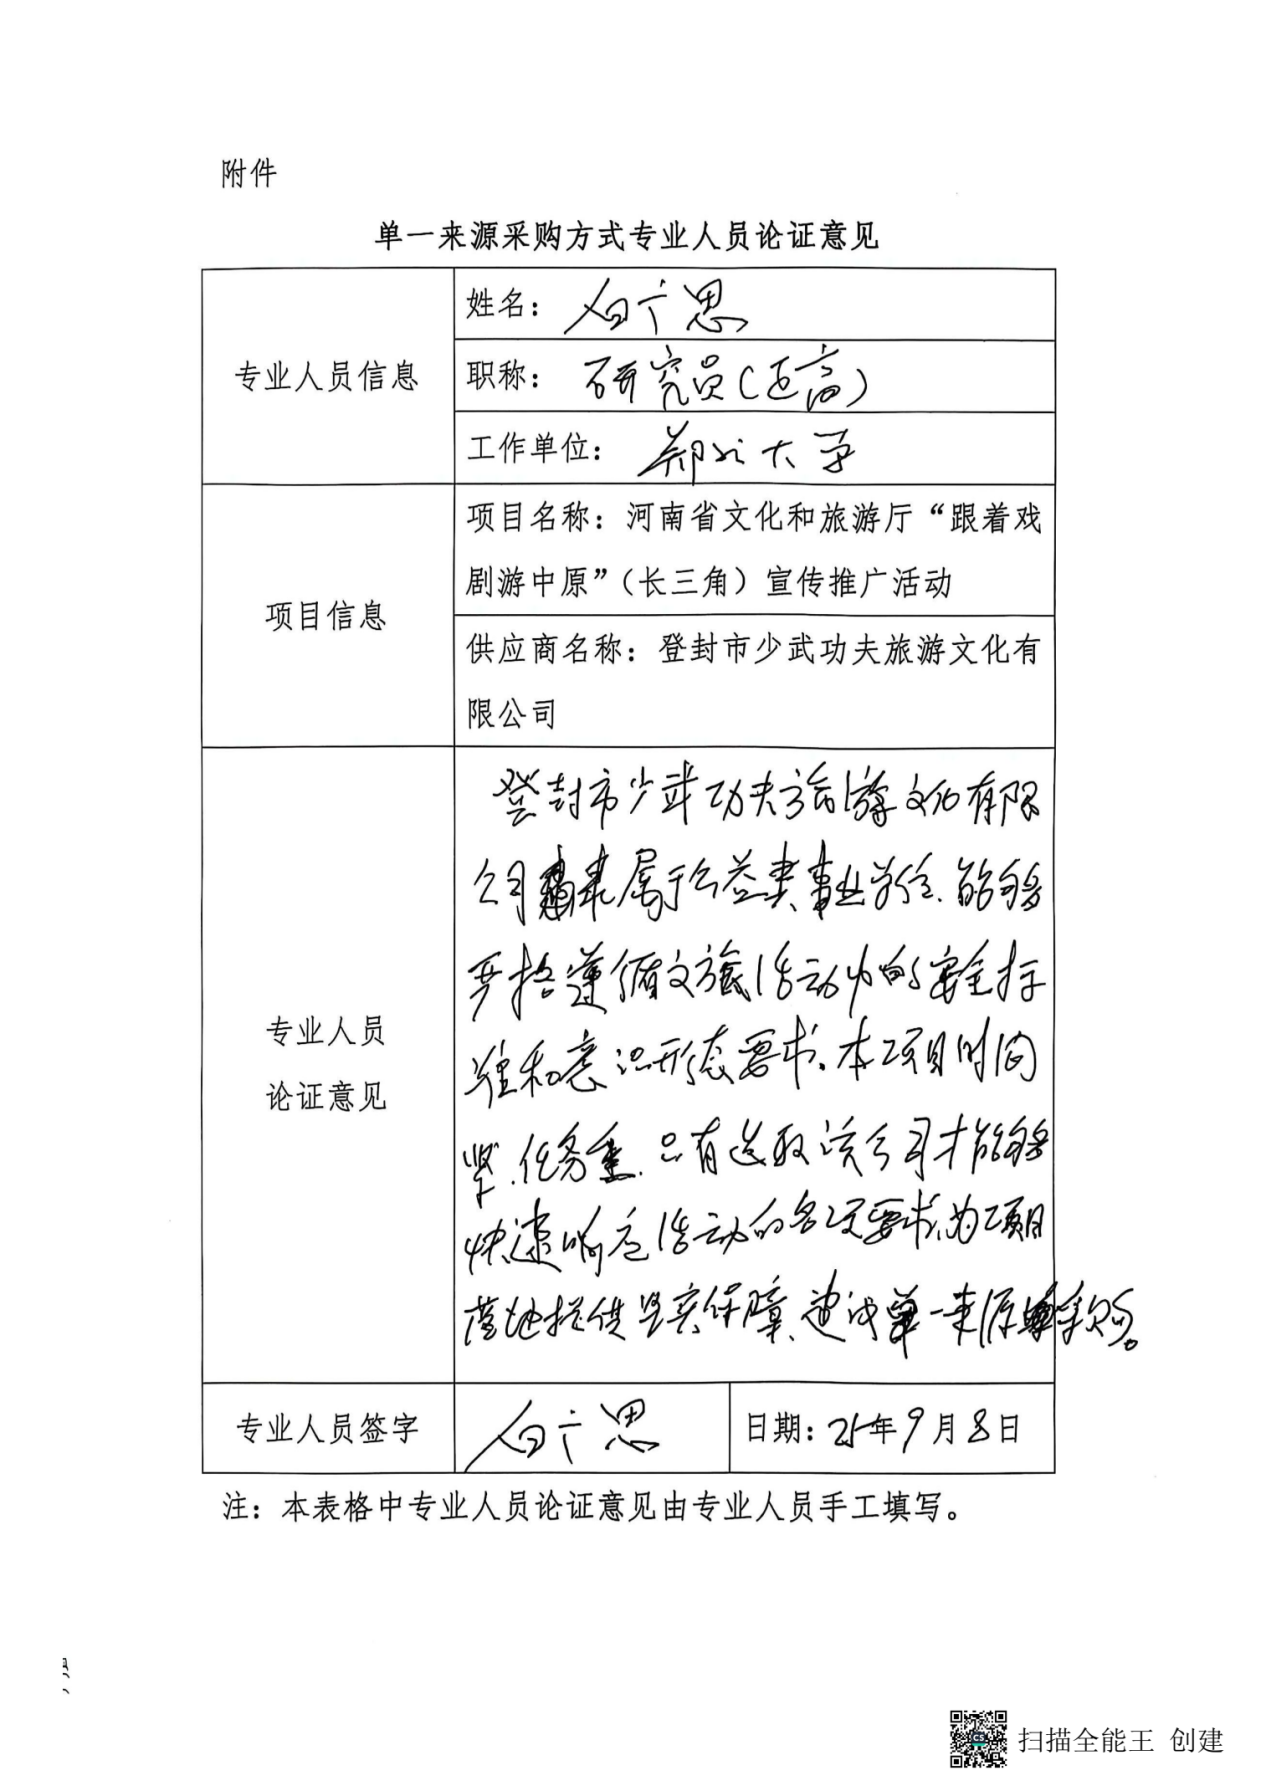 附件
单一来源采购方式专业人员论证意见
专业人员信息
姓名：白广思
职称：研究员（正高）
工作单位：郑州大学
项目信息
项目名称：河南省文化和旅游厅“跟着戏
剧游中原”（长三角）宣传推广活动
供应商名称：登封市少武功夫旅游文化有
限公司
专业人员
论证意见
登封市少武功夫旅游文化有限
公司隶属于公益类事业单位、能够
严格遵循文旅活动中的安全标
准和意识形态要求。本项目时间
紧、任务重、只有选取该公司才能够
快速响应活动的各项要求、为项目
落地提供坚实保障、建议单一来源采购。
专业人员签字
白广思
日期：25年9月8日
注：本表格中专业人员论证意见由专业人员手工填写。
扫描全能王 创建